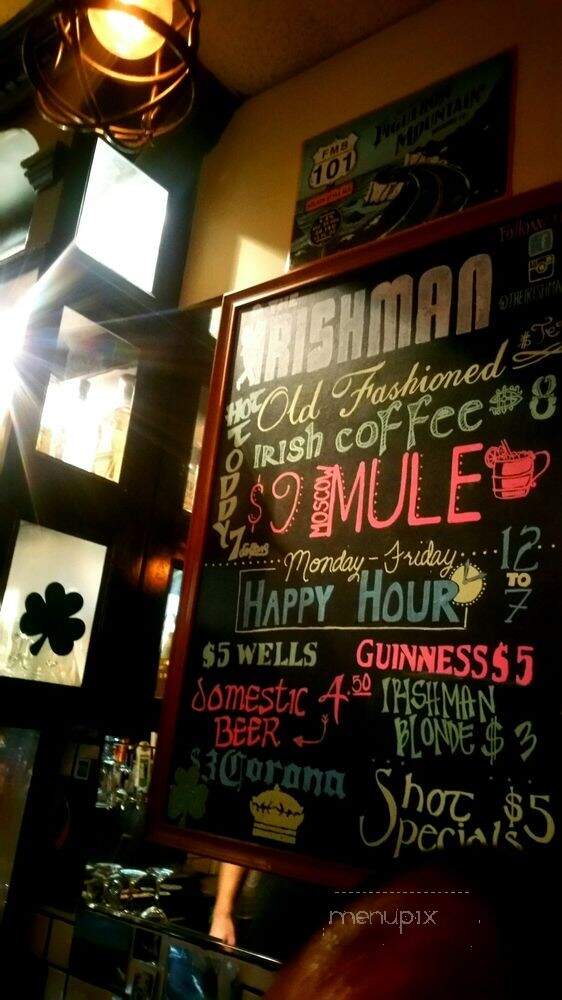 FMB
101
FIGUEROA
MOUNTAIN
Follow
THE
IRISHMAN
@THEIRISHMA
Old Fashioned $ Te
HOT TODDY 7 dollars
IRISH COFFEE $8
$9 MOSCOW MULE
Monday-Friday
HAPPY HOUR
12 TO 7
$5 WELLS
GUINNESS $5
DOMESTIC BEER 4.50
IRISHMAN BLONDE $3
$3 Corona
Shot Specials $5
menupix